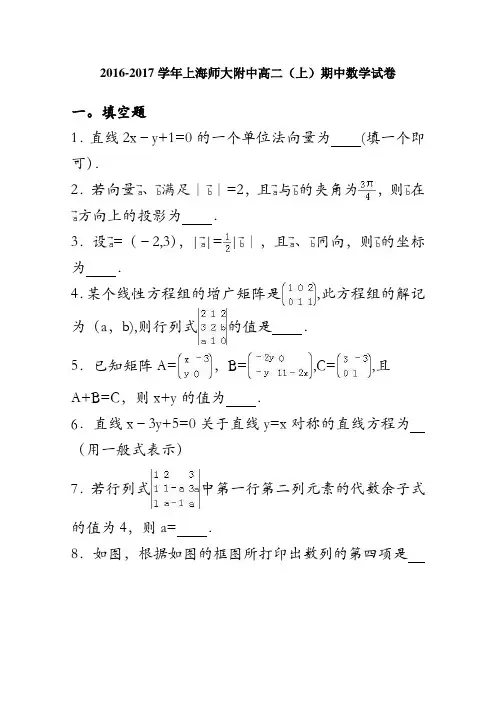 2016-2017学年上海师大附中高二（上）期中数学试卷
一。填空题
1．直线2x﹣y+1=0的一个单位法向量为    （填一个即
可）．
2．若向量a⃗、b⃗满足｜b⃗｜=2，且a⃗与b⃗的夹角为3π/4，则b⃗在
a⃗方向上的投影为    ．
3．设a⃗=（﹣2,3），|a⃗|=1/2|b⃗｜，且a⃗、b⃗同向，则b⃗的坐标
为    ．
4．某个线性方程组的增广矩阵是(1 0 2; 0 1 1),此方程组的解记
为（a，b),则行列式|2 1 2; 3 2 b; a 1 0|的值是    ．
5．已知矩阵A=(x -3; y 0)，B=(-2y 0; -y 11-2x),C=(3 -3; 0 1),且
A+B=C，则x+y的值为    ．
6．直线x﹣3y+5=0关于直线y=x对称的直线方程为
（用一般式表示）
7．若行列式|1 2 3; 1 1-a 3a; 1 a-1 a|中第一行第二列元素的代数余子式
的值为4，则a=    ．
8．如图，根据如图的框图所打印出数列的第四项是